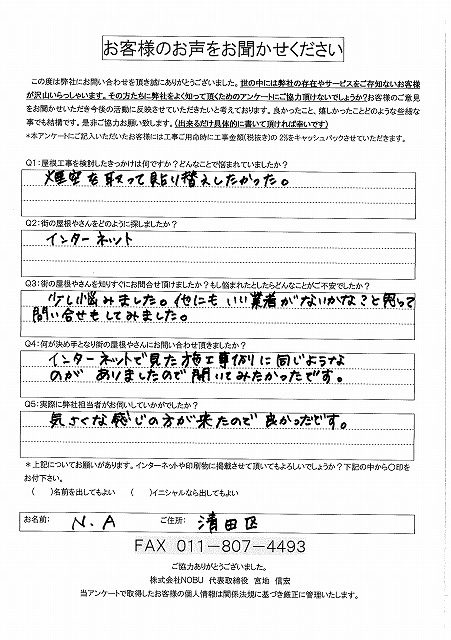 お客様のお声をお聞かせください
この度は弊社にお問い合わせを頂き誠にありがとうございました。世の中には弊社の存在やサービスをご存知ないお客様
が沢山いらっしゃいます。その方たちに弊社をよく知って頂くためのアンケートにご協力頂けないでしょうか?お客様のご意見
をお聞かせいただき今後の活動に反映させていただきたいと考えております。良かったこと、嬉しかったことどのような些細な
事でも結構です。是非ご協力お願い致します。(出来るだけ具体的に書いて頂ければ幸いです)
*本アンケートにご記入いただいたお客様には工事ご用命時に工事金額(税抜き)の 2%をキャッシュバックさせていただきます。
Q1:屋根工事を検討したきっかけは何ですか?どんなことで悩まれていましたか?
煙突を取って貼り替えしたかった。
Q2:街の屋根やさんをどのように探しましたか?
インターネット
Q3:街の屋根やさんを知りすぐにお問合せ頂けましたか?もし悩まれたとしたらどんなことがご不安でしたか?
少し悩みました。他にもいい業者がないかな?と思って
問い合せもしてみました。
Q4:何が決め手となり街の屋根やさんにお問い合わせ頂けましたか?
インターネットで見た施工事例に同じような
のがありましたので聞いてみたかったです。
Q5:実際に弊社担当者がお伺いしていかがでしたか?
気さくな感じの方が来たので良かったです。
*上記についてお願いがあります。インターネットや印刷物に掲載させて頂いてもよろしいでしょうか?下記の中から〇印を
お付下さい。
( )名前を出してもよい ( )イニシャルなら出してもよい
お名前: N.A ご住所: 清田区
FAX 011-807-4493
ご協力ありがとうございました。
株式会社NOBU 代表取締役 宮地 信宏
当アンケートで取得したお客様の個人情報は関係法規に基づき厳正に管理いたします。